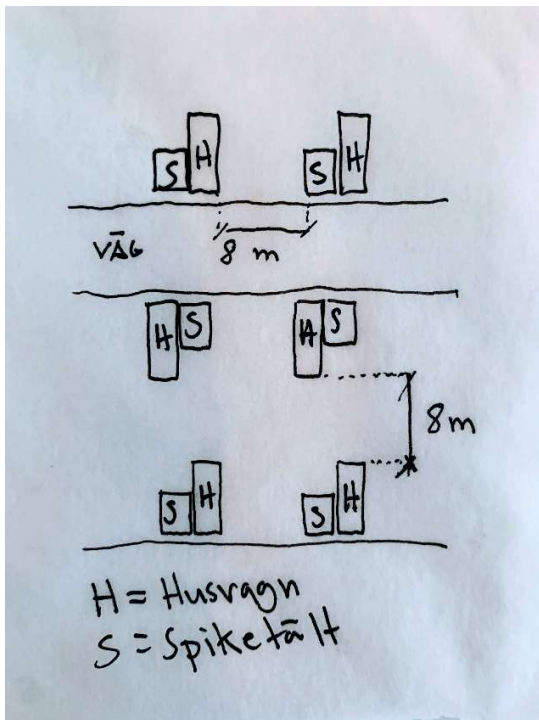 S H S H
VÄG 8 m
H S H S
8m
S H S H
H = Husvagn
S = Spiketält